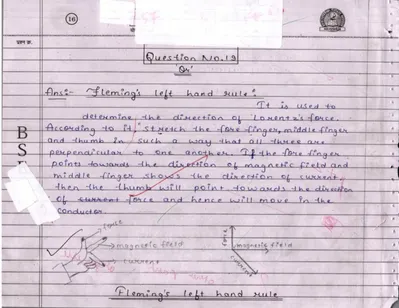 16
Question No. 19
Or
Ans:- Fleming's left hand rule:-
It is used to
determine the direction of Lorentz's force.
According to it, stretch the fore finger, middle finger
and thumb in such a way that all three are
perpendicular to one another. If the fore finger
points towards the direction of magnetic field and
middle finger shows the direction of current,
then the thumb will point towards the direction
of current force and hence will move in the
conductor.
B
S
force
magnetic field
current
force
magnetic field
current
Fleming's left hand rule